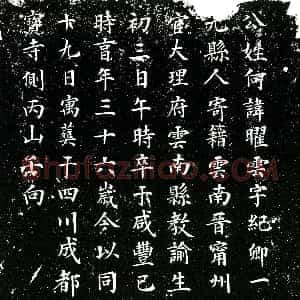 公姓何諱曜雲字紀卿一
九縣人寄籍雲南晉甯州
官大理府雲南縣教諭生
初三日午時卒于咸豐己
時享年三十六歲今以同
十九日寓葬于四川成都
寶寺側丙山壬向